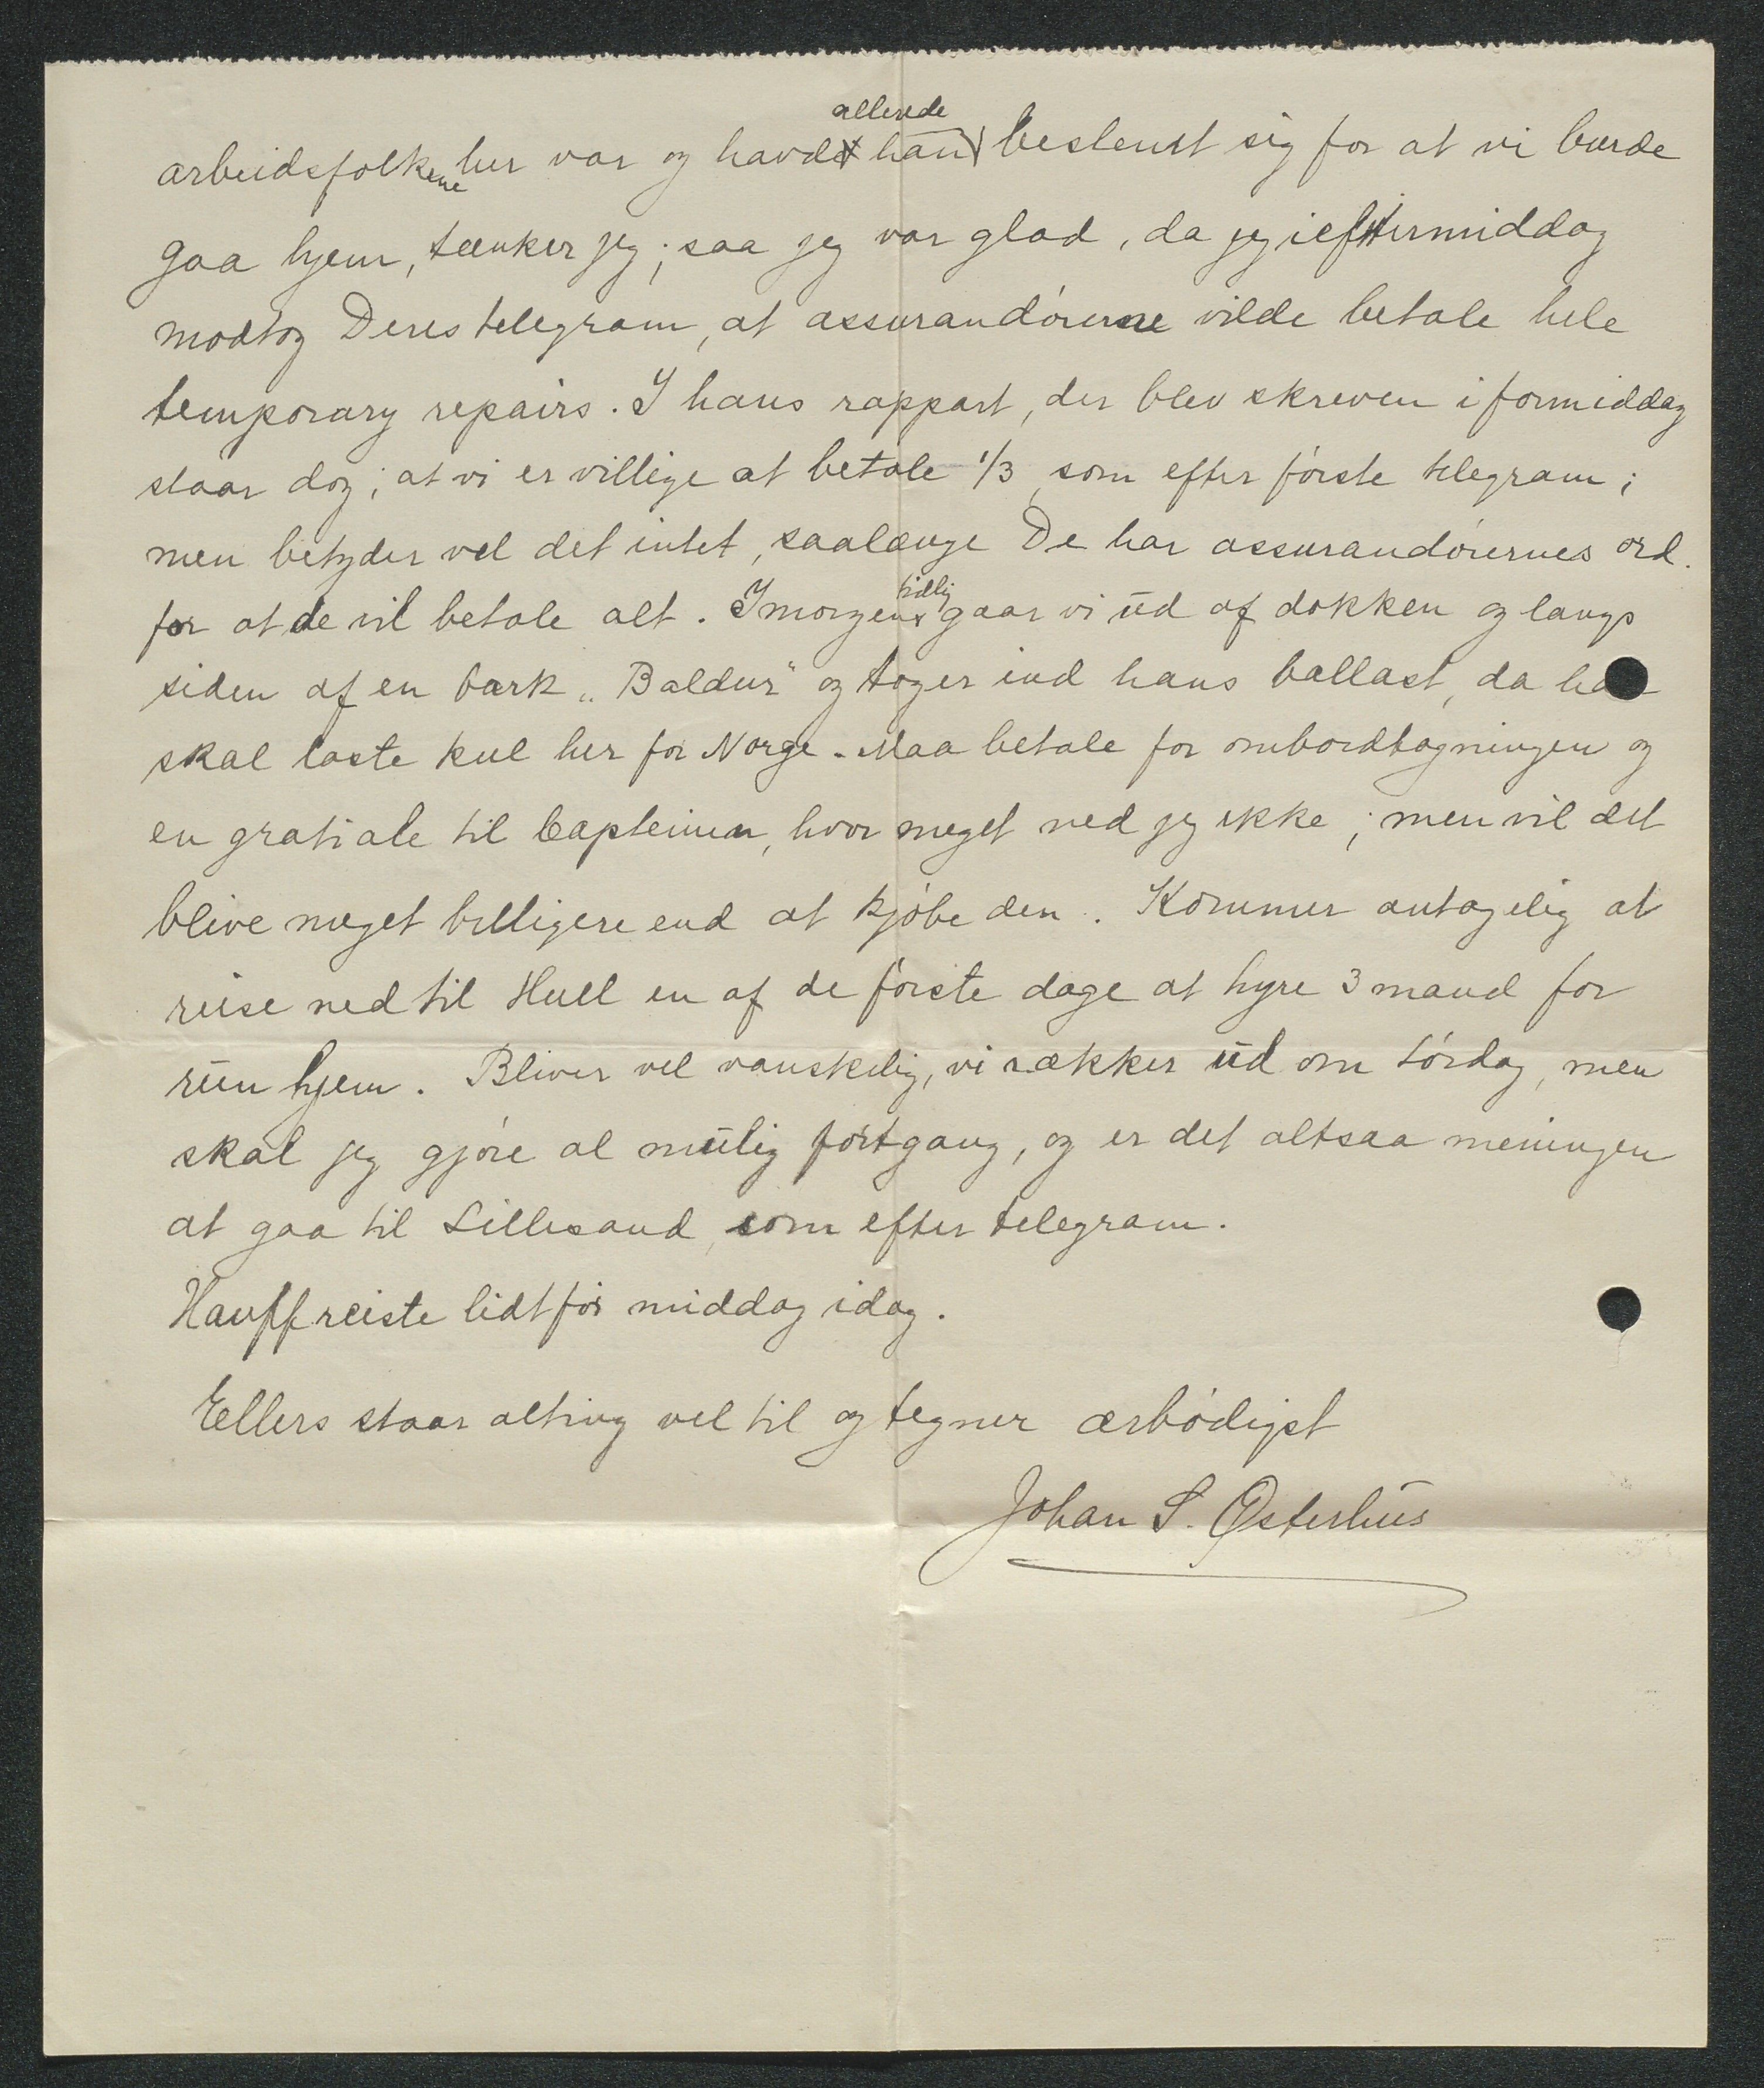 arbeidsfolkene her var og havde han allerede beslemt sig for at vi burde
gaa hjem, tænker jeg; saa jeg var glad, da jeg ieftermiddag
modtog Deres telegram, at assurandørerne vilde betale hele
temporary repairs. I hans rapport, der blev skreven i formiddag
staar dog; at vi er villige at betale 1/3, som efter første telegram;
men betyder vel det intet, saalænge De har assurandørernes ord.
for at de vil betale alt. Imorgen tidlig gaar vi ud af dokken og langs
siden af en bark „Baldur" og tager ind hans ballast, da han
skal laste kul her for Norge. Maa betale for ombordtagningen og
en gratiale til Capteinen, hvor meget ved jeg ikke; men vil det
blive meget billigere end at kjøbe den. Kommer antagelig at
reise ned til Hull en af de første dage at hyre 3 mand for
run hjem. Bliver vel vanskelig, vi rækker ud om Lørdag, men
skal jeg gjøre al mulig fortgang, og er det altsaa meningen
at gaa til Lillesand, som efter telegram.
Hauff reiste lidt før middag idag.
Ellers staar alting vel til og tegner ærbødigst
Johan S. Østerhus